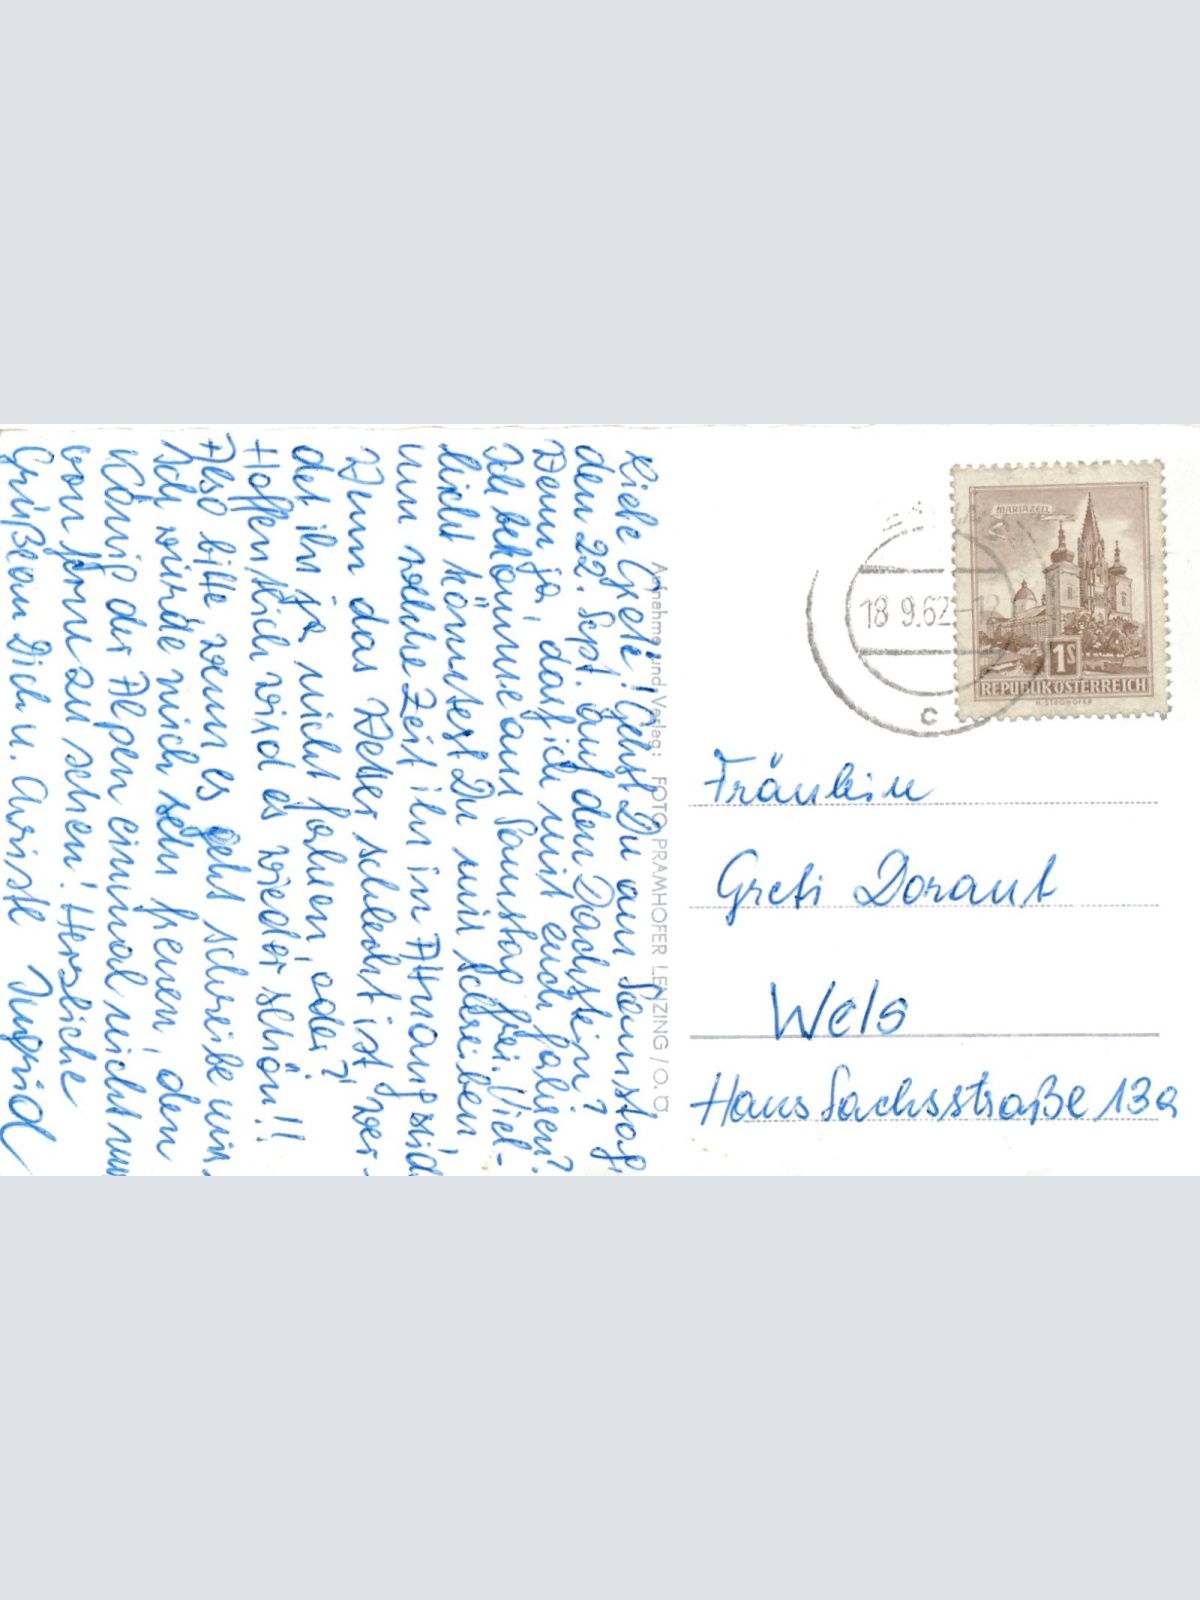 Liebe Grete! Gehst Du am Samstag,
den 22. Sept. auf den Dachstein?
Wenn ja, darf ich mit euch fahren?
Ich bekomme am Samstag frei. Viel-
leicht könntest Du mir schreiben
um welche Zeit ihr in Attnang seid
Wenn das Wetter schlecht ist, wer-
det ihr ja nicht fahren, oder?
Hoffentlich wird es wieder schön!!
Also bitte, wenn es geht schreibe mir.
Ich würde mich sehr freuen, den
König der Alpen einmal nicht nur
von fern zu sehen! Herzliche
Grüße an Dich u. Christl Ingrid
Aufnahme und Verlag: FOTO PRAMHOFER LENZING / O. Ö
18 9.62
c
MARIAZELL
1S
REPUBLIK ÖSTERREICH
Fräulein
Greti Doraut
Wels
Hans Sachsstraße 13a